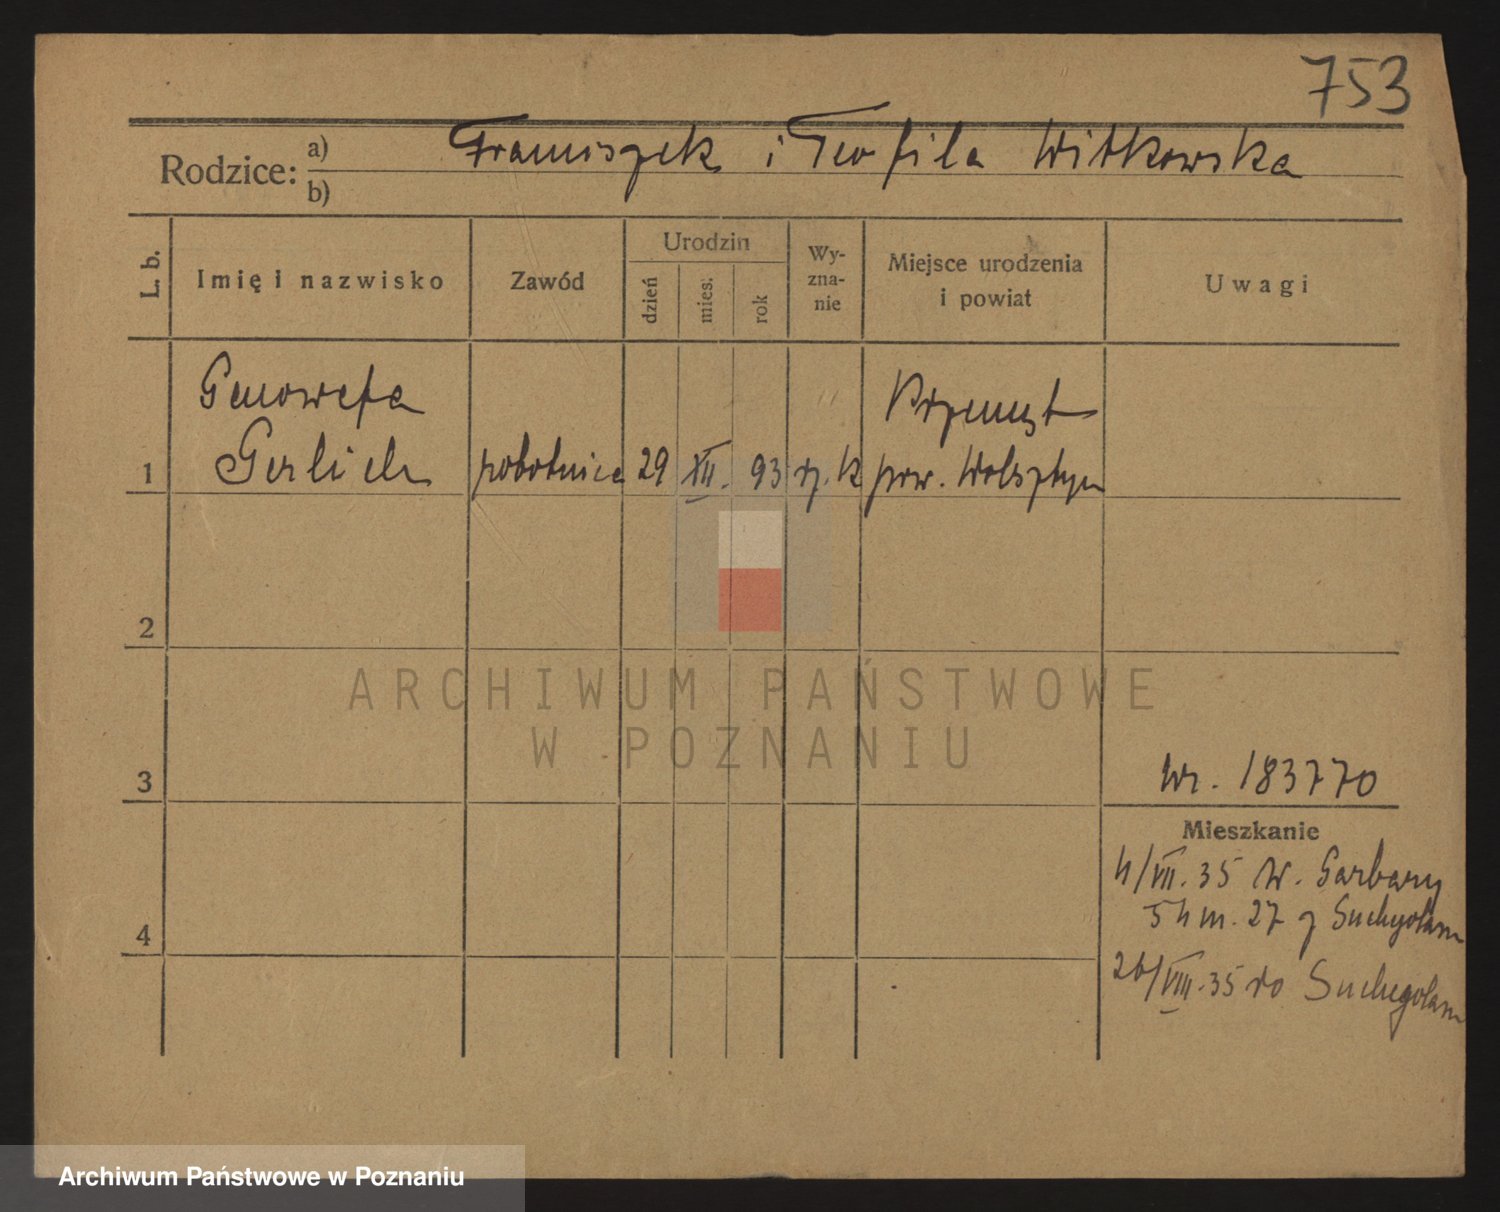 753
Rodzice: a) Franciszek i Teofila Witkowska
b)
L. b.
Imię i nazwisko
Zawód
Urodzin
dzień
mies.
rok
Wy-
zna-
nie
Miejsce urodzenia
i powiat
Uwagi
Genowefa
Gerlich
1
robotnica
29
XII.
93
rz. k
Przemęt
pow. Wolsztyn
2
3
4
Nr. 183770
Mieszkanie
4/VII. 35 W. Garbary
54 m. 27 z
26/VIII. 35 do
ARCHIWUM PAŃSTWOWE
W POZNANIU
Archiwum Państwowe w Poznaniu